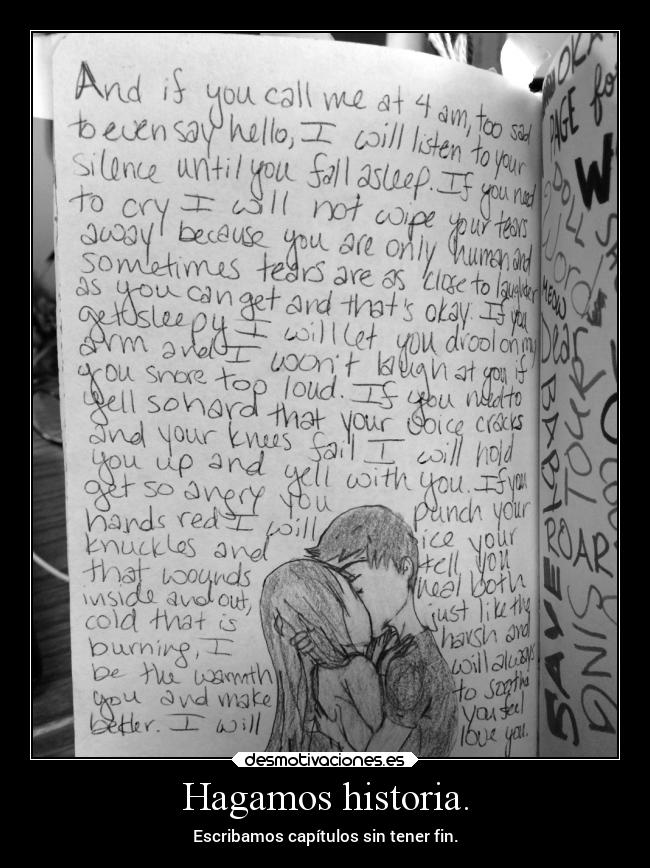 And if you call me at 4 am, too sad
to even say hello, I will listen to your
silence until you fall asleep. If you need
to cry I will not wipe your tears
away because you are only human and
sometimes tears are as close to laughter
as you can get and that's okay. If you
get sleepy I will let you drool on my
arm and I won't laugh at you if
you snore too loud. If you need to
yell so hard that your voice cracks
and your knees fail I will hold
you up and yell with you. If you
get so angry you punch your
hands red I will ice your
knuckles and tell you
that wounds heal both
inside and out, just like the
cold that is harsh and
burning, I will always
be the warmth to soothe
you and make you feel
better. I will love you.
PAGE fo
W
DOLL
Word
MEOW
Dear
TOUR
ROAR
SAVE
desmotivaciones.es
Hagamos historia.
Escribamos capítulos sin tener fin.